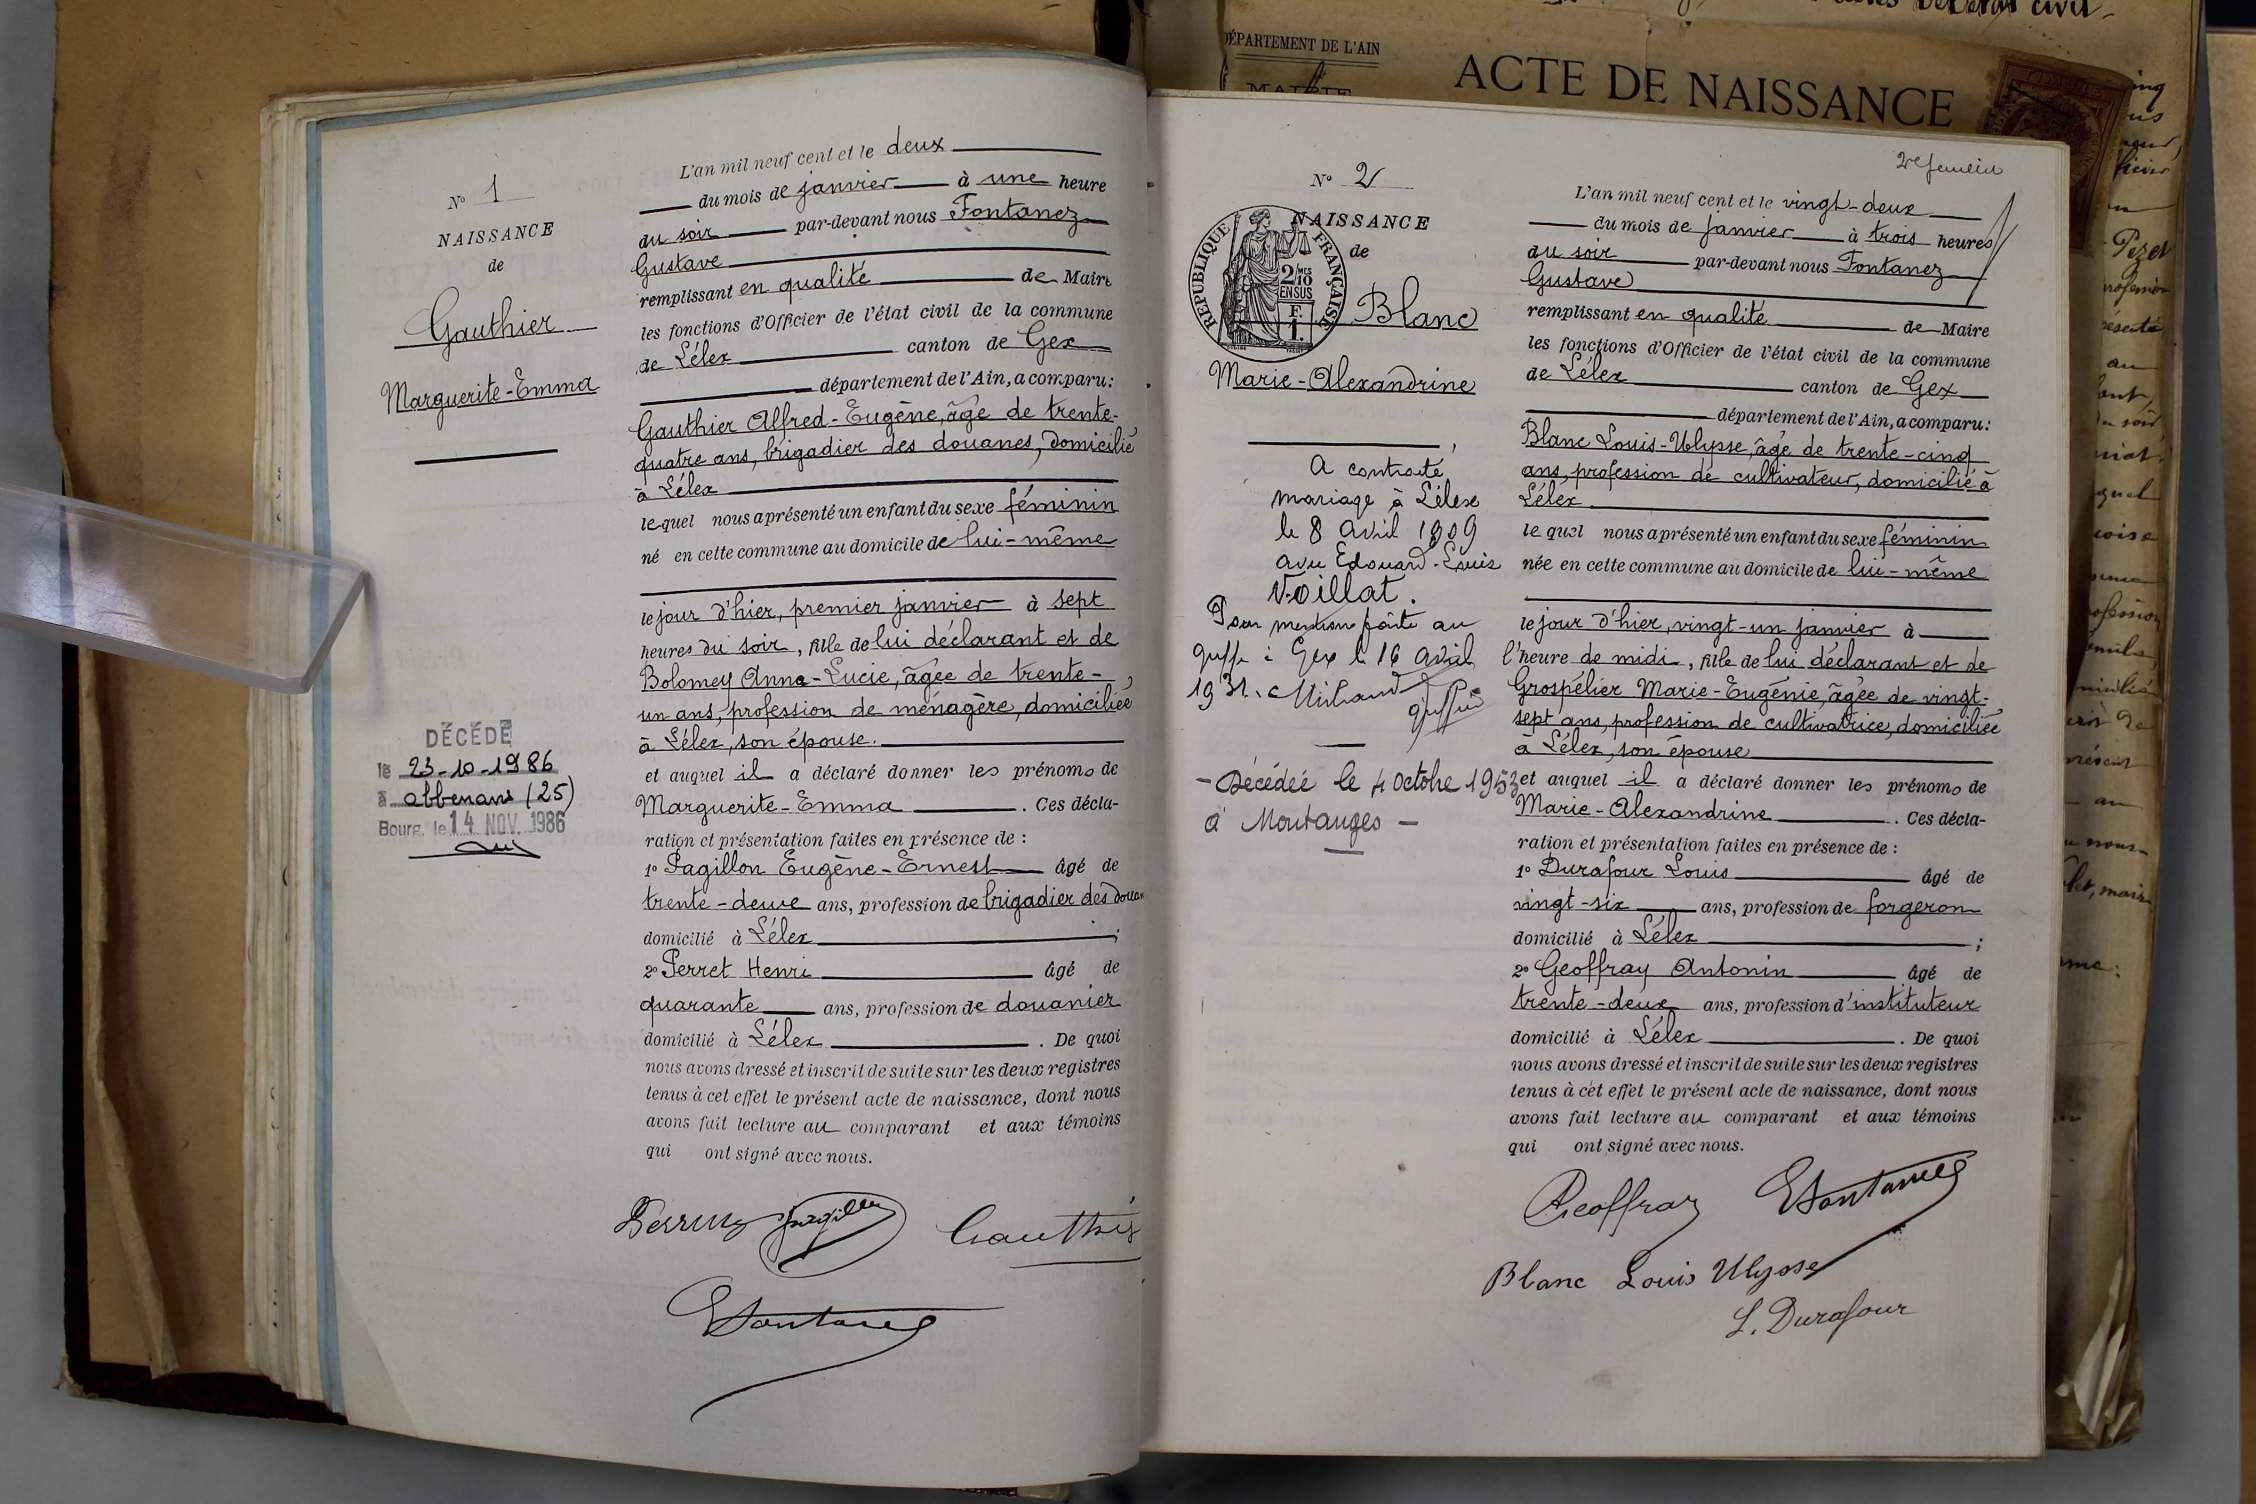 N° 1
NAISSANCE
de
Gauthier
Marguerite-Emma
DÉCÉDÉ
le 23-10-1986
à abbenans (25)
Bourg, le 14 NOV. 1986
L'an mil neuf cent et le deux
du mois de janvier à une heure
du soir par-devant nous Fontanez
Gustave
remplissant en qualité de Maire
les fonctions d'Officier de l'état civil de la commune
de Lélex canton de Gex
département de l'Ain, a comparu:
Gauthier Alfred-Eugène, âgé de trente-
quatre ans, brigadier des douanes, domicilié
à Lélex
lequel nous a présenté un enfant du sexe féminin
né en cette commune au domicile de lui-même
le jour d'hier, premier janvier à sept
heures du soir, fille de lui déclarant et de
Bolomey Anna-Lucie, âgée de trente-
un ans, profession de ménagère, domiciliée
à Lélex, son épouse.
et auquel il a déclaré donner les prénoms de
Marguerite-Emma . Ces décla-
ration et présentation faites en présence de :
1° Pagillon Eugène-Ernest âgé de
trente-deux ans, profession de brigadier des douan
domicilié à Lélex ;
2° Perret Henri âgé de
quarante ans, profession de douanier
domicilié à Lélex . De quoi
nous avons dressé et inscrit de suite sur les deux registres
tenus à cet effet le présent acte de naissance, dont nous
avons fait lecture au comparant et aux témoins
qui ont signé avec nous.
Gauthier
DÉPARTEMENT DE L'AIN
MAIRIE
ACTE DE NAISSANCE
N° 2
NAISSANCE
de
RÉPUBLIQUE FRANÇAISE
2/10 MES
EN SUS
F.
1.
Blanc
Marie-Alexandrine
A contracté
mariage à Lélex
le 8 avril 1909
avec Edouard-Louis
Voillat.
Pour mention faite au
greffe à Gex le 16 avril
1931.
- Décédée le 4 octobre 1953
à Montanges -
L'an mil neuf cent et le vingt-deux
du mois de janvier à trois heures
du soir par-devant nous Fontanez
Gustave
remplissant en qualité de Maire
les fonctions d'Officier de l'état civil de la commune
de Lélex canton de Gex
département de l'Ain, a comparu:
Blanc Louis-Ulysse, âgé de trente-cinq
ans, profession de cultivateur, domicilié à
Lélex
lequel nous a présenté un enfant du sexe féminin
née en cette commune au domicile de lui-même
le jour d'hier, vingt-un janvier à
l'heure de midi, fille de lui déclarant et de
Grospélier Marie-Eugénie, âgée de vingt-
sept ans, profession de cultivatrice, domiciliée
à Lélex, son épouse
et auquel il a déclaré donner les prénoms de
Marie-Alexandrine . Ces décla-
ration et présentation faites en présence de :
1° Durafour Louis âgé de
vingt-six ans, profession de forgeron
domicilié à Lélex ;
2° Geoffray Antonin âgé de
trente-deux ans, profession d'instituteur
domicilié à Lélex . De quoi
nous avons dressé et inscrit de suite sur les deux registres
tenus à cet effet le présent acte de naissance, dont nous
avons fait lecture au comparant et aux témoins
qui ont signé avec nous.
Geoffray Fontanez
Blanc Louis Ulysse
L. Durafour